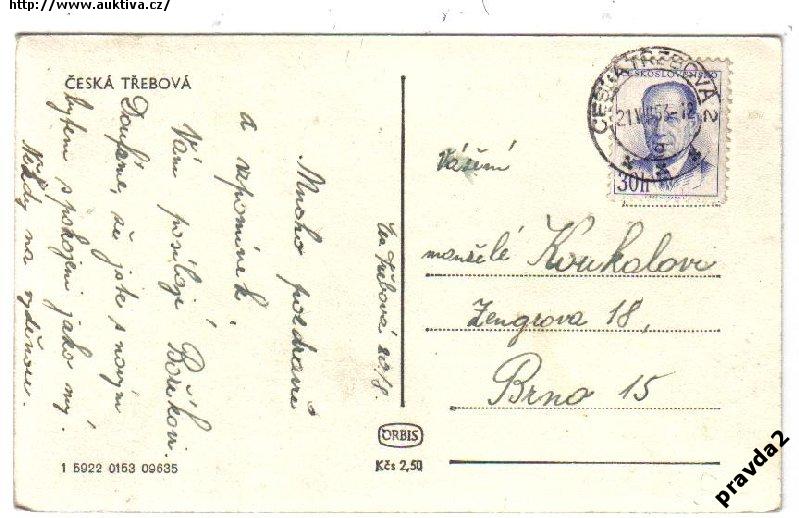 http://www.auktiva.cz/
ČESKÁ TŘEBOVÁ
Mnoho pozdravů
a vzpomínek
Vám posílají Bořkovi.
Doufáme, že jste s novým
bytem spokojeni jako my.
Někdy na
Čes. Třebová 20/8.
ČESKÁ TŘEBOVÁ 2
ČESKOSLOVENSKO
30h
Vážení
manželé Koukalovi
Zengrova 18,
Brno 15
ORBIS
Kčs 2,50
1 5922 0153 09635
pravda2